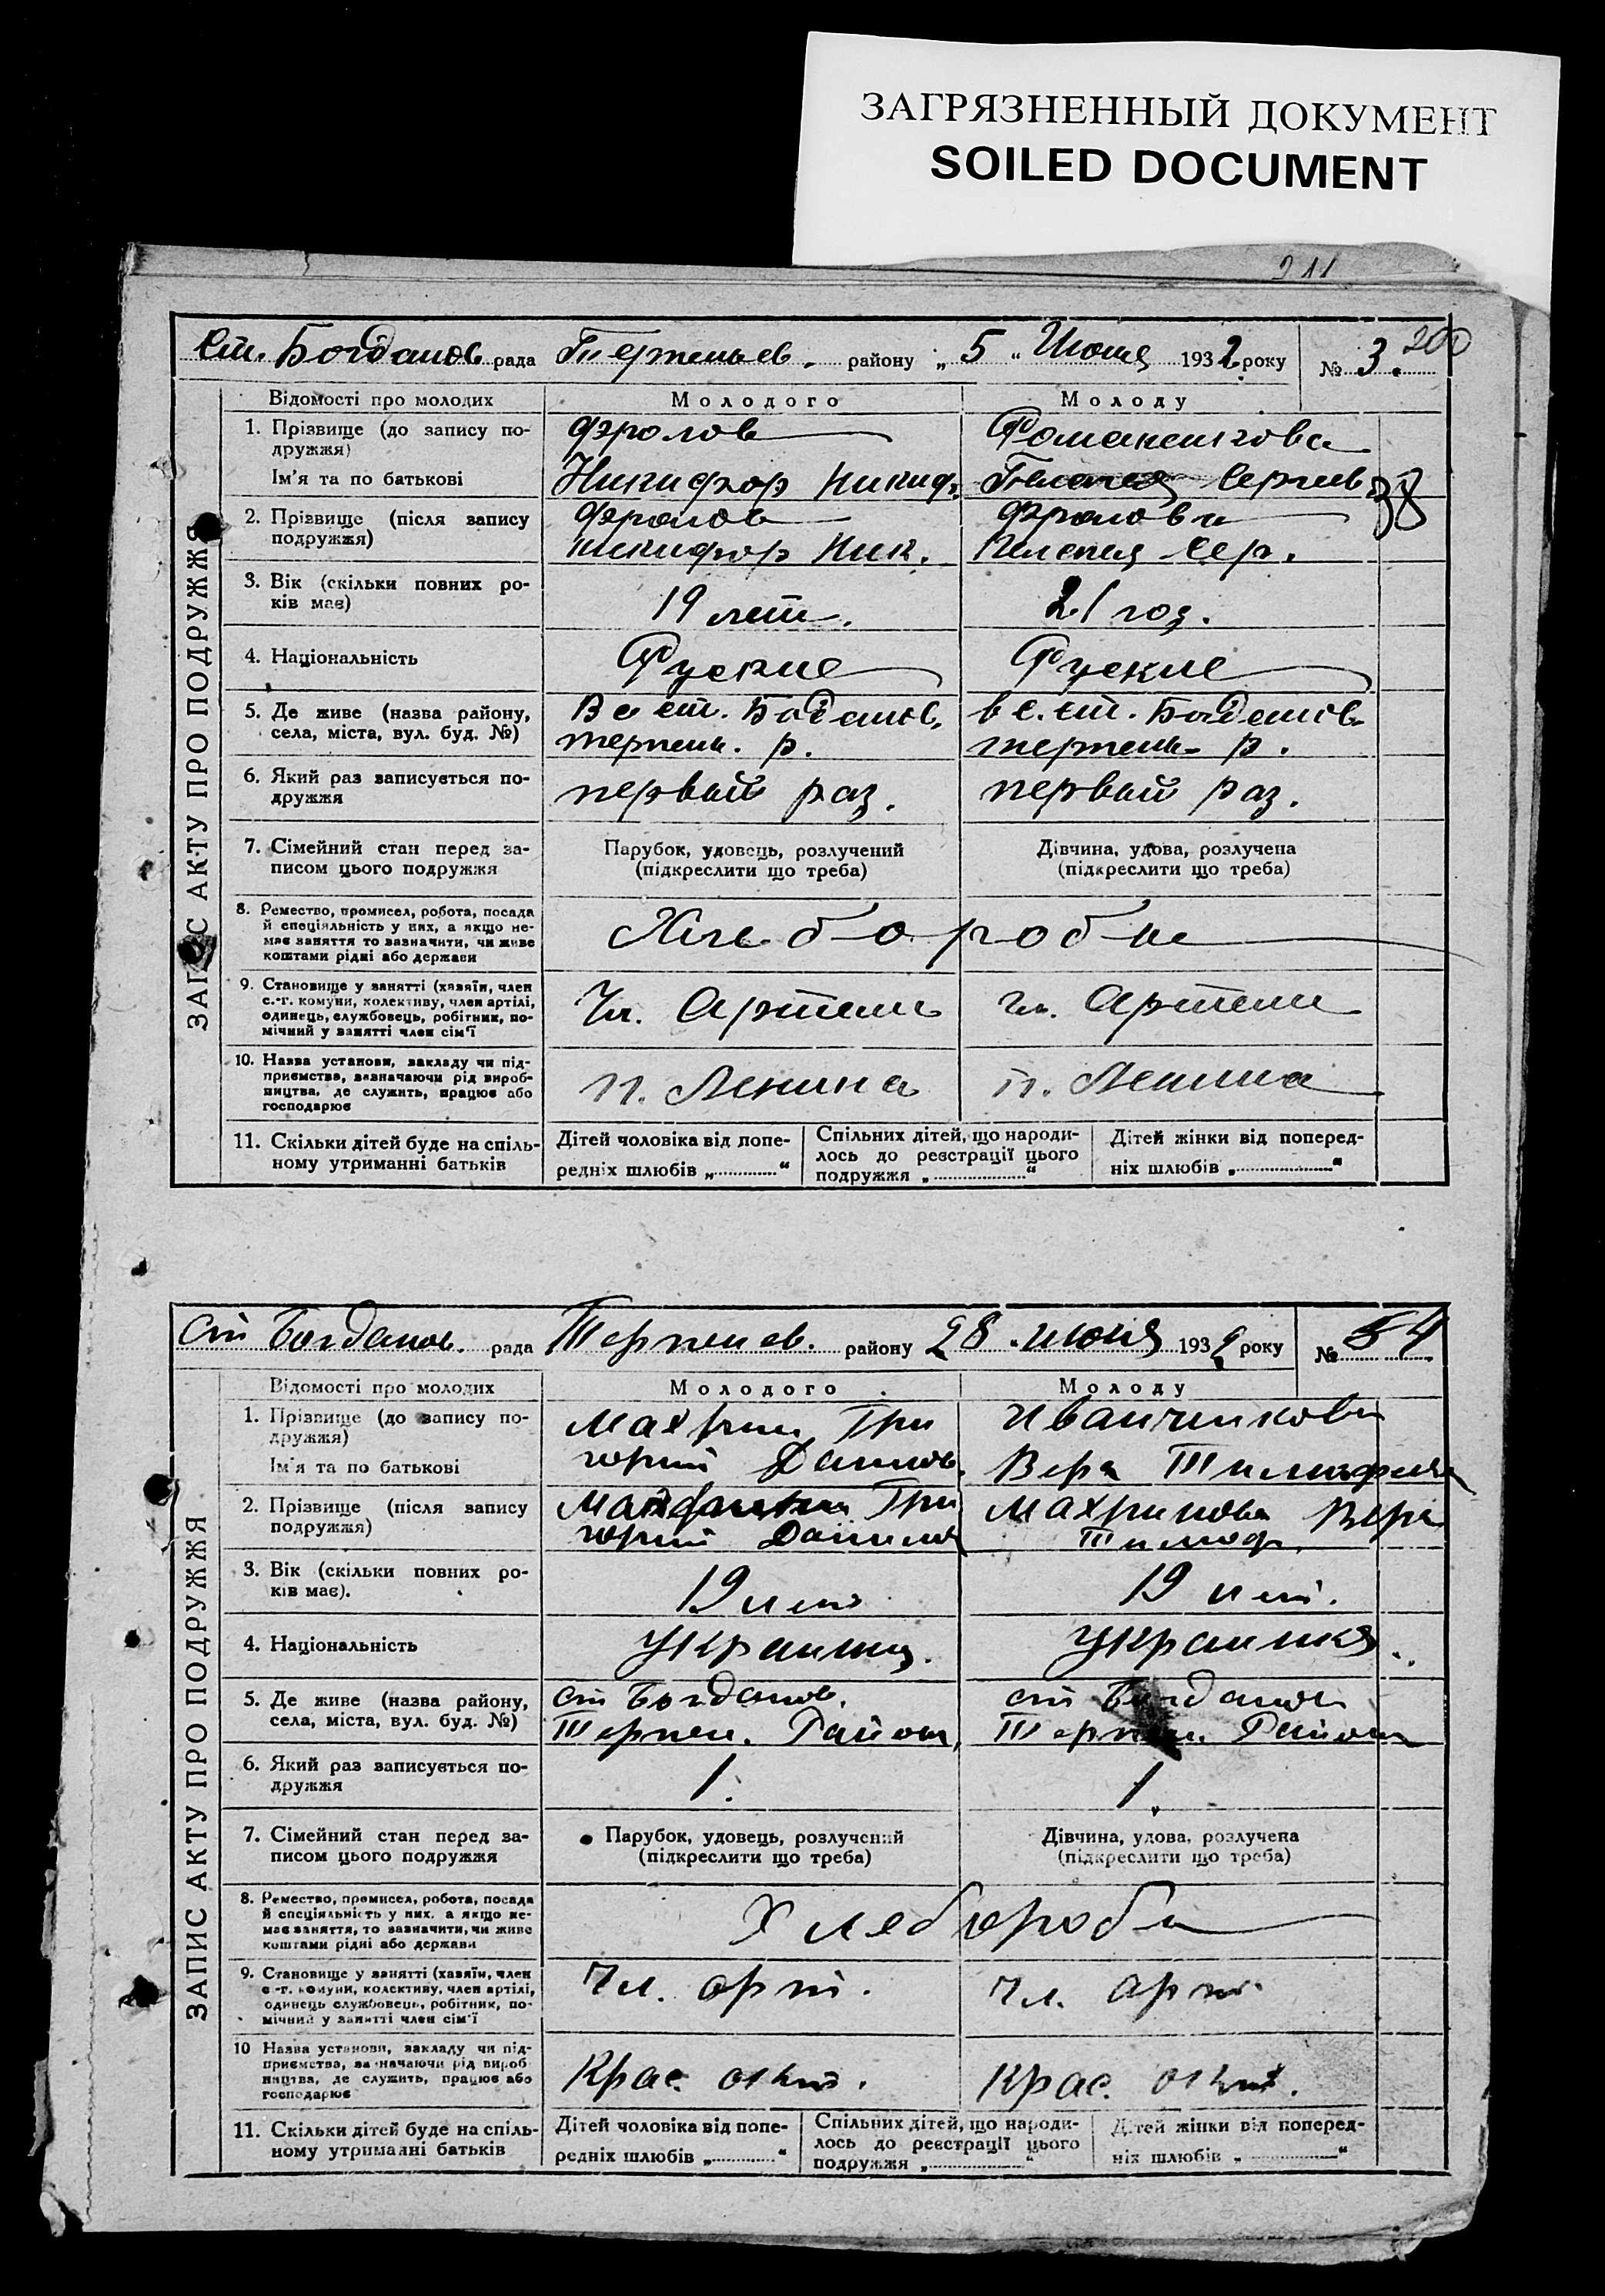 ЗАГРЯЗНЕННЫЙ ДОКУМЕНТ
SOILED DOCUMENT
211
200
Ст. Богданов рада Терпеньев. району „ 5 " Июня 1932 року № 3.
ЗАПИС АКТУ ПРО ПОДРУЖЖЯ
Відомості про молодих Молодого Молоду
1. Прізвище (до запису по-
дружжя)
Фролов Романенкова
Ім'я та по батькові Никифор Никиф. Сергеев
38
2. Прізвище (після запису
подружжя)
Фролов Фролова
Никифор Ник. Пелагея Сер.
3. Вік (скільки повних ро-
ків має)
19 лет. 21 год.
4. Національність Руские Руские
5. Де живе (назва району,
села, міста, вул. буд. №)
В с ст. Богданов, в с. ст. Богданов
терпен. р. терпен. р.
6. Який раз записується по-
дружжя
первый раз. первый раз.
7. Сімейний стан перед за-
писом цього подружжя
Парубок, удовець, розлучений
(підкреслити що треба)
Дівчина, удова, розлучена
(підкреслити що треба)
8. Ремество, промисел, робота, посада
й спеціяльність у них, а якщо не-
має заняття то зазначити, чи живе
коштами рідні або держави
Хлеборобы
9. Становище у занятті (хазяїн, член
с.-г. комуни, колективу, член артілі,
одинець, службовець, робітник, по-
мічний у занятті член сім'ї
Чл. Артель чл. Артели
10. Назва установи, закладу чи під-
приємства, зазначаючи рід вироб-
ництва, де служить, працює або
господарює
п. Ленина п. Ленина
11. Скільки дітей буде на спіль-
ному утриманні батьків
Дітей чоловіка від попе-
редніх шлюбів „ "
Спільних дітей, що народи-
лось до реєстрації цього
подружжя „ "
Дітей жінки від поперед-
ніх шлюбів „ "
Ст Богданов. рада Терпенев. району 28 " июня 1932 року № 54
ЗАПИС АКТУ ПРО ПОДРУЖЖЯ
Відомості про молодих Молодого Молоду
1. Прізвище (до запису по-
дружжя)
Махрин Гри Иванчикова
Ім'я та по батькові горий Данилов. Вера Тимофеевна
2. Прізвище (після запису
подружжя)
Гри Махринова Вера
горий Данилов Тимоф.
3. Вік (скільки повних ро-
ків має).
19 лет 19 лет.
4. Національність Украинец. Украинка.
5. Де живе (назва району,
села, міста, вул. буд. №)
ст Богданов. ст Богданов
Терпен. Район, Терпен. Район
6. Який раз записується по-
дружжя
1. 1.
7. Сімейний стан перед за-
писом цього подружжя
Парубок, удовець, розлучений
(підкреслити що треба)
Дівчина, удова, розлучена
(підкреслити що треба)
8. Ремество, промисел, робота, посада
й спеціяльність у них, а якщо не-
має заняття, то зазначити, чи живе
коштами рідні або держави
Хлебороби
9. Становище у занятті (хазяїн, член
с.-г. комуни, колективу, член артілі,
одинець службовець, робітник, по-
мічний у занятті член сім'ї
Чл. арт. Чл. арт.
10 Назва установи, закладу чи під-
приємства, зазначаючи рід вироб
ництва, де служить, працює або
господарює
Крас. Окт. Крас. Окт.
11. Скільки дітей буде на спіль-
ному утриманні батьків
Дітей чоловіка від попе-
редніх шлюбів „ "
Спільних дітей, що народи-
лось до реєстрації цього
подружжя „ "
Дітей жінки від поперед-
ніх шлюбів „ "